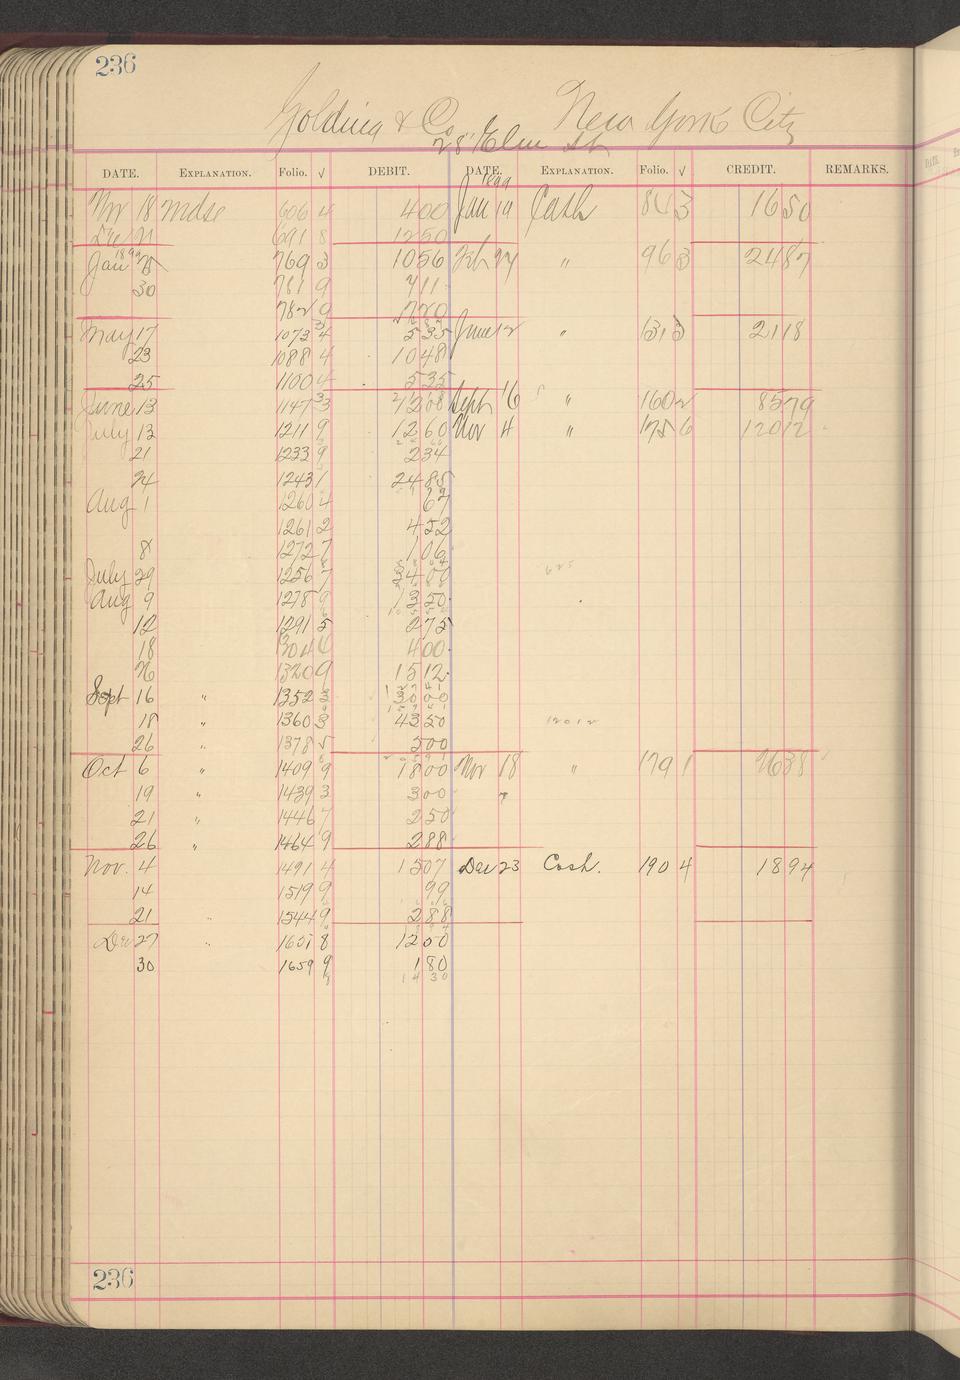 236
Golding & Co New York City
28 Elm St
DATE. EXPLANATION. Folio. √ DEBIT. DATE. EXPLANATION. Folio. √ CREDIT. REMARKS.
1899
Nov 18 Mdse 606 4 400 Jan 19 Cash 843 1650
Dec 21 691 8 1250
1899
Jan 25 769 3 1056 Feb 24 " 963 2487
30 781 9 711
782 9 720
May 17 1073 4 535 June 12 " 1313 2118
23 1088 4 1048
25 1100 4 535
June 13 1147 3 1208 Sept 16 " 1602 8579
July 13 1211 9 1260 Nov 4 " 1756 12012
21 1233 9 234
24 1243 1 2485
Aug 1 1260 4 67
1261 2 452
8 1272 7 106
July 29 1256 7 3400
Aug 9 1278 9 1350
12 1291 5 275
18 1304 6 400
26 1320 9 1512
Sept 16 " 1352 3 3000
18 " 1360 3 4350 12012
26 " 1378 5 500
Oct 6 " 1409 9 1800 Nov 18 " 1791 2638
19 " 1439 3 300 "
21 " 1446 7 250
26 " 1464 9 288
Nov. 4 1491 4 1507 Dec 23 Cash. 1904 1894
14 1519 9 99
21 " 1544 9 288
Dec 27 " 1651 8 1250
30 1659 9 180
1430
236